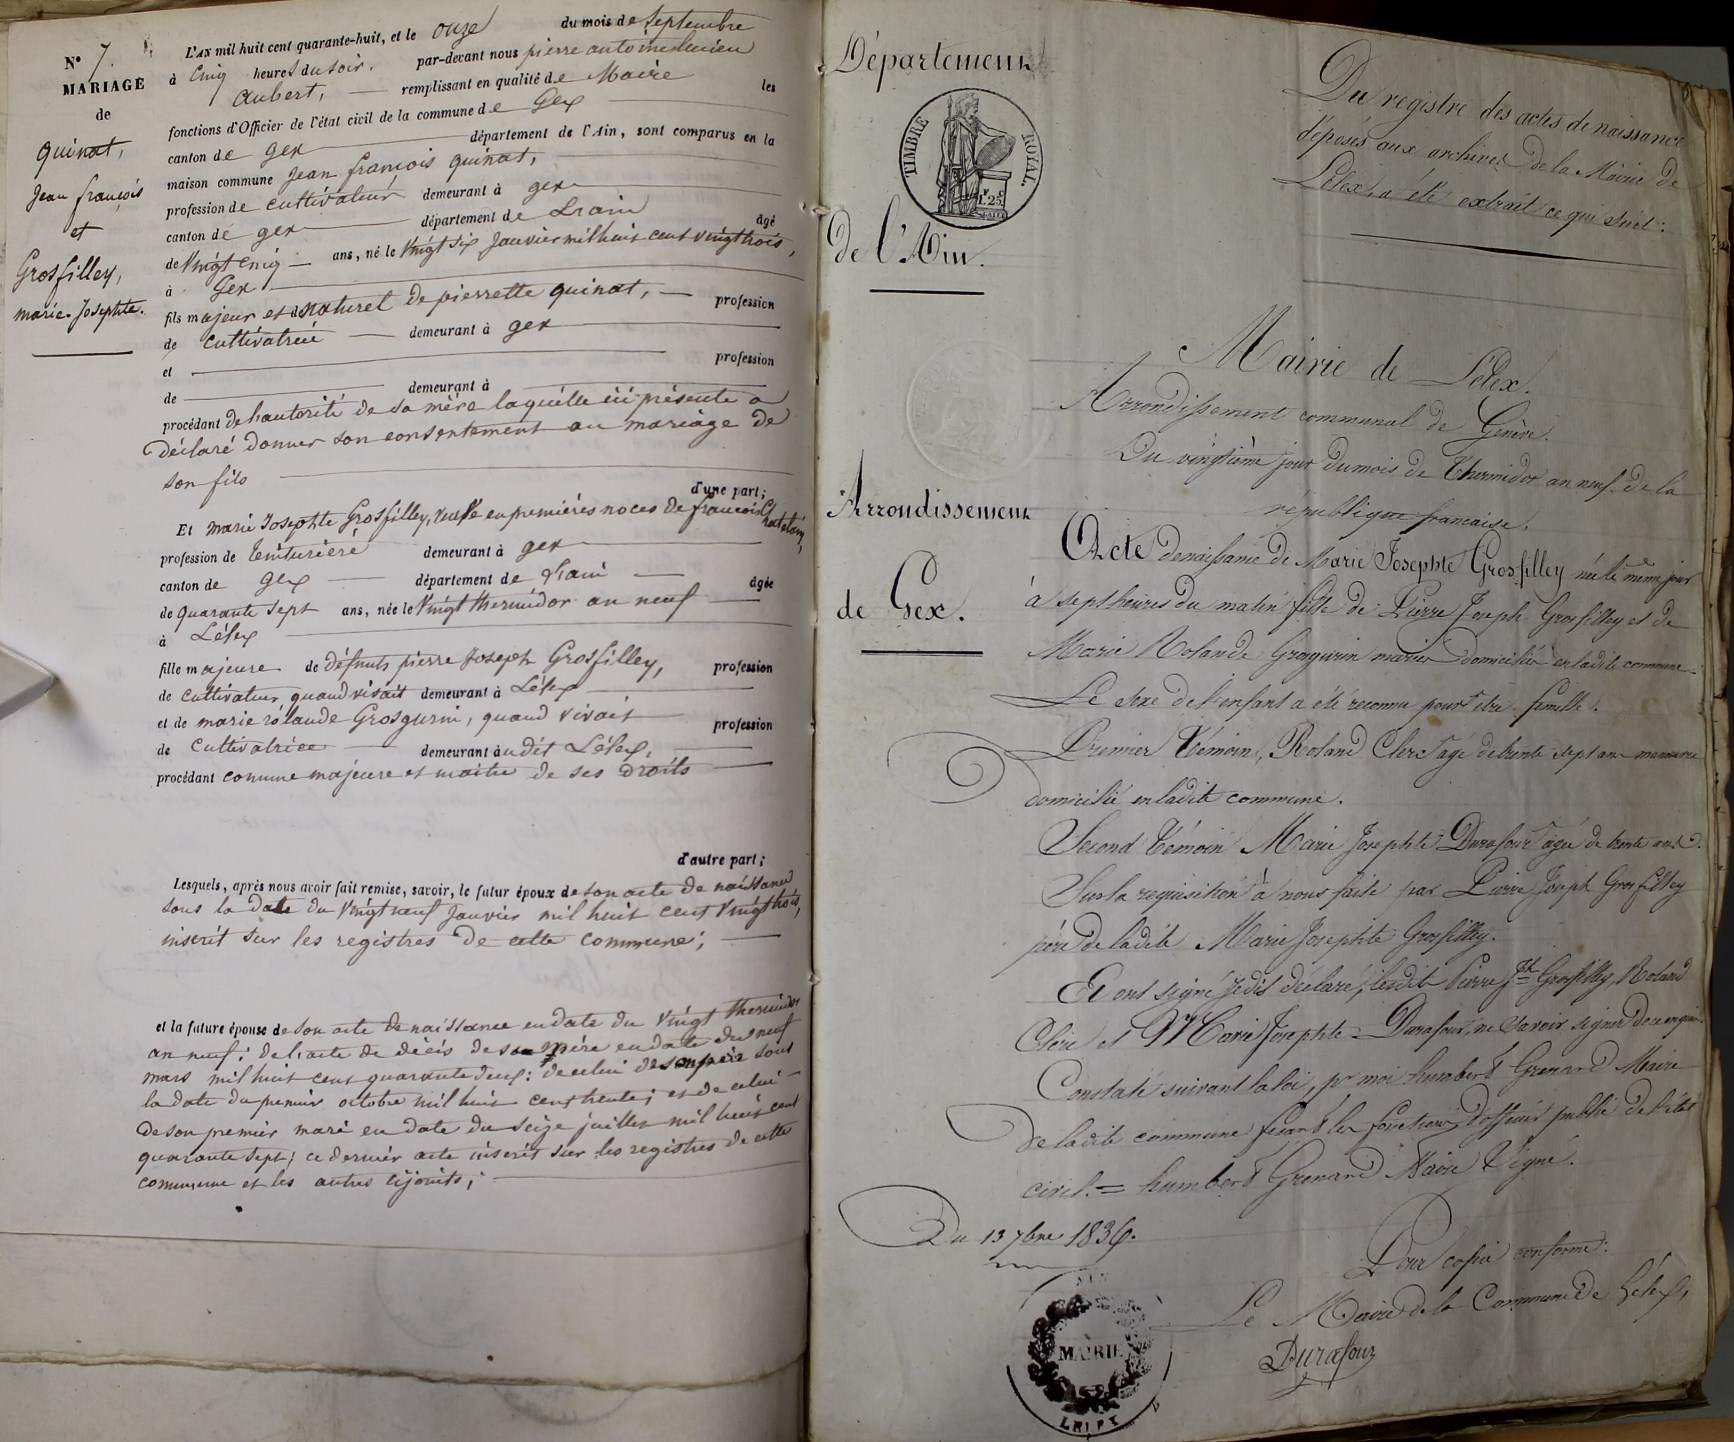 N° 7.
MARIAGE
de
quinat,
Jean françois
et
Grosfilley,
marie-Josephte.
L'AN mil huit cent quarante-huit, et le onze du mois de Septembre
à cinq heures du soir. par-devant nous pierre antoine lucien
aubert, remplissant en qualité de Maire les
fonctions d'Officier de l'état civil de la commune de Gex
canton de gex département de l'Ain, sont comparus en la
maison commune Jean françois quinat,
profession de cultivateur demeurant à gex
canton de gex département de Lrain âgé
de Vingt cinq ans, né le Vingt six Janvier mil huit cent vingt trois,
à Gex
fils majeur et naturel de pierrette quinat, profession
de cultivatrice demeurant à gex
et profession
de demeurant à
procédant de l'autorité de sa mère laquelle ici présente a
déclaré donner son consentement au mariage de
son fils
d'une part;
Et marie Josephte Grosfilley, veuve en premières noces de françois Chatelain,
profession de teinturière demeurant à gex
canton de gex département de l'ain âgée
de quarante sept ans, née le Vingt thermidor an neuf
à Lélex
fille majeure de défunts pierre Joseph Grosfilley, profession
de cultivateur, quand vivait demeurant à Lélex
et de marie rolande Grosgurin, quand vivait profession
de cultivatrice demeurant audit Lélex,
procédant comme majeure et maitre de ses droits
d'autre part;
Lesquels, après nous avoir fait remise, savoir, le futur époux de son acte de naissance
sous la date du Vingt neuf Janvier mil huit cent vingt trois,
inscrit sur les registres de cette commune;
et la future épouse de son acte de naissance en date du vingt thermidor
an neuf; de l'acte de décès de sa mère en date du neuf
mars mil huit cent quarante deux; de celui de son père sous
la date du premier octobre mil huit cent trente; et de celui
de son premier mari en date du seize juillet mil huit cent
quarante sept; ce dernier acte inscrit sur les registres de cette
commune et les autres cijoints;
Département
TIMBRE ROYAL.
1.25
de l'Ain.
Arrondissement
de Gex.
Du registre des actes de naissance
déposés aux archives de la Mairie de
Lélex, a été extrait ce qui suit:
Mairie de Lélex.
Arrondissement communal de Genève.
Du vingtième jour du mois de Thermidor an neuf de la
république française.
Acte de naissance de Marie Josephte Grosfilley née le même jour
à sept heures du matin fille de Pierre Joseph Grosfilley et de
Marie Rolande Grosgurin mariés domiciliés en ladite commune.
Le sexe de l'enfant a été reconnu pour être femelle.
Premier Témoin, Roland Clerc âgé de trente sept ans manœuvre
domicilié en ladite commune.
Second Témoin Marie Josephte Durafour agée de trente ans
Sur la requisition à nous faite par Pierre Joseph Grosfilley
père de ladite Marie Josephte Grosfilley.
Et ont signé je dis déclaré, lesdits Pierre Jh Grosfilley, Roland
Clerc et Marie Josephte Durafour, ne savoir signer de ce enquis
Constaté suivant la loi, pr moi humbert Grenard Maire
de ladite commune fesant les fonctions d'officier public de l'état
civil. = humbert Grenard Maire Signé.
Du 13 7bre 1836.
Pour copie conforme:
Le Maire de la Commune de Lélex,
Durafour
MAIRIE